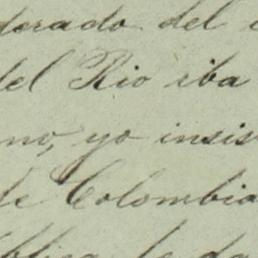 derado del
del Rio iba
no, yo insis
de Colombia